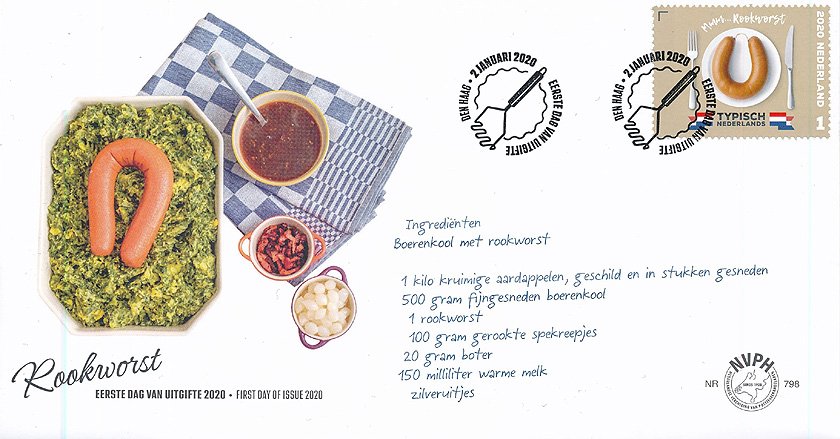 DEN HAAG • 2 JANUARI 2020
EERSTE DAG VAN UITGIFTE
DEN HAAG • 2 JANUARI 2020
EERSTE DAG VAN UITGIFTE
Mmm... Rookworst
2020 NEDERLAND
1
TYPISCH
NEDERLANDS
Ingrediënten
Boerenkool met rookworst
1 kilo kruimige aardappelen, geschild en in stukken gesneden
500 gram fijngesneden boerenkool
1 rookworst
100 gram gerookte spekreepjes
20 gram boter
150 milliliter warme melk
zilveruitjes
Rookworst
EERSTE DAG VAN UITGIFTE 2020 • FIRST DAY OF ISSUE 2020
NR
NVPH
SINDS 1928
798